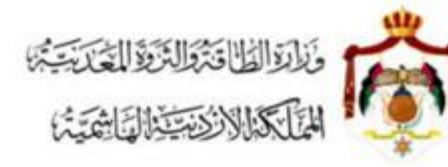 وَزَارَة الطَّاقَةِ وَالثَّرْوَةِ المَعْدَنِيَّةِ
المَمْلَكَة الأُرْدُنِيَّةِ الهَاشِمِيَّةِ